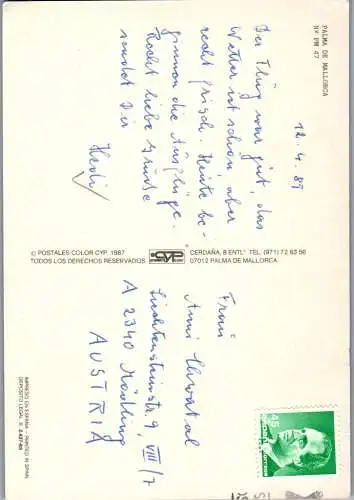 PALMA DE MALLORCA
Nº PM 47
12.4.89
Der Flug war gut, das
Wetter ist schön aber
recht frisch. Heute be-
ginnen die Ausflüge.
Recht liebe Grüße
sendet Dir
Hedi
© POSTALES COLOR CYP, 1987
TODOS LOS DERECHOS RESERVADOS
CYP
CERDAÑA, 8 ENTLº TEL. (971) 72 63 56
07012 PALMA DE MALLORCA
Frau
Anni
Liechtensteinstr. 9, VIII/7
A 2340 Mödling
AUSTRIA
IMPRESO EN ESPAÑA - PRINTED IN SPAIN
DEPOSITO LEGAL B.
45